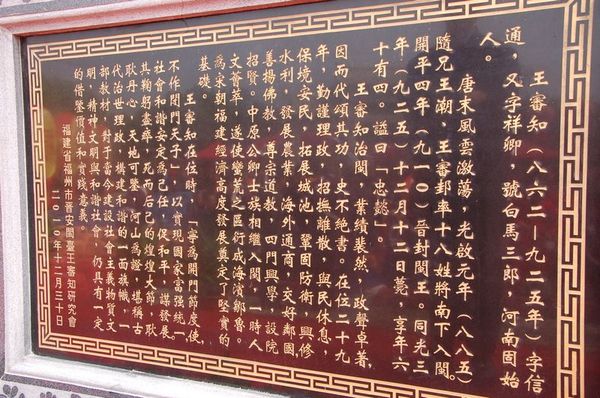 王審知（八六二—九二五年）字信
通，又字祥卿，號白馬三郎，河南固始
人。
唐末風雲激蕩，光啟元年（八八五）
隨兄王潮、王審邽率十八姓將南下入閩。
開平四年（九一〇）晉封閩王。同光三
年（九二五）十二月十二日薨，享年六
十有四。謚曰「忠懿」。
王審知治閩，業績裴然，政聲卓著，
因而代頌其功，史不絕書。在位二十九
年，勤謹理政，招撫離散，與民休息，
保境安民，拓展城池，鞏固防衛，興修
水利，發展農業，海外通商，交好鄰國，
善揚佛教，尊崇道教，四門興學，設院
招賢。中原公卿士族相繼入閩，一時人
文薈萃，遂使蠻荒之區衍成海濱鄒魯。
為宋朝福建經濟高度發展奠定了堅實的
基礎。
王審知在位時，「寧為開門節度使，
不作閉門天子」，以實現國家富强統一、
社會和谐安定為己任，促和平，謀發展。
其鞠躬盡瘁，死而后己的煌煌大節，耿
耿丹心，天地可鑒，河山為證，堪稱古
代治世理政，構建和谐的一面旗幟，一
部教材，對于當今建設社會主義物質文
明，精神文明與和諧社會，仍具有一定
的借鑒價值和實踐意義。
福建省福州市晉安閩臺王審知研究會
二〇一〇年十二月三十日